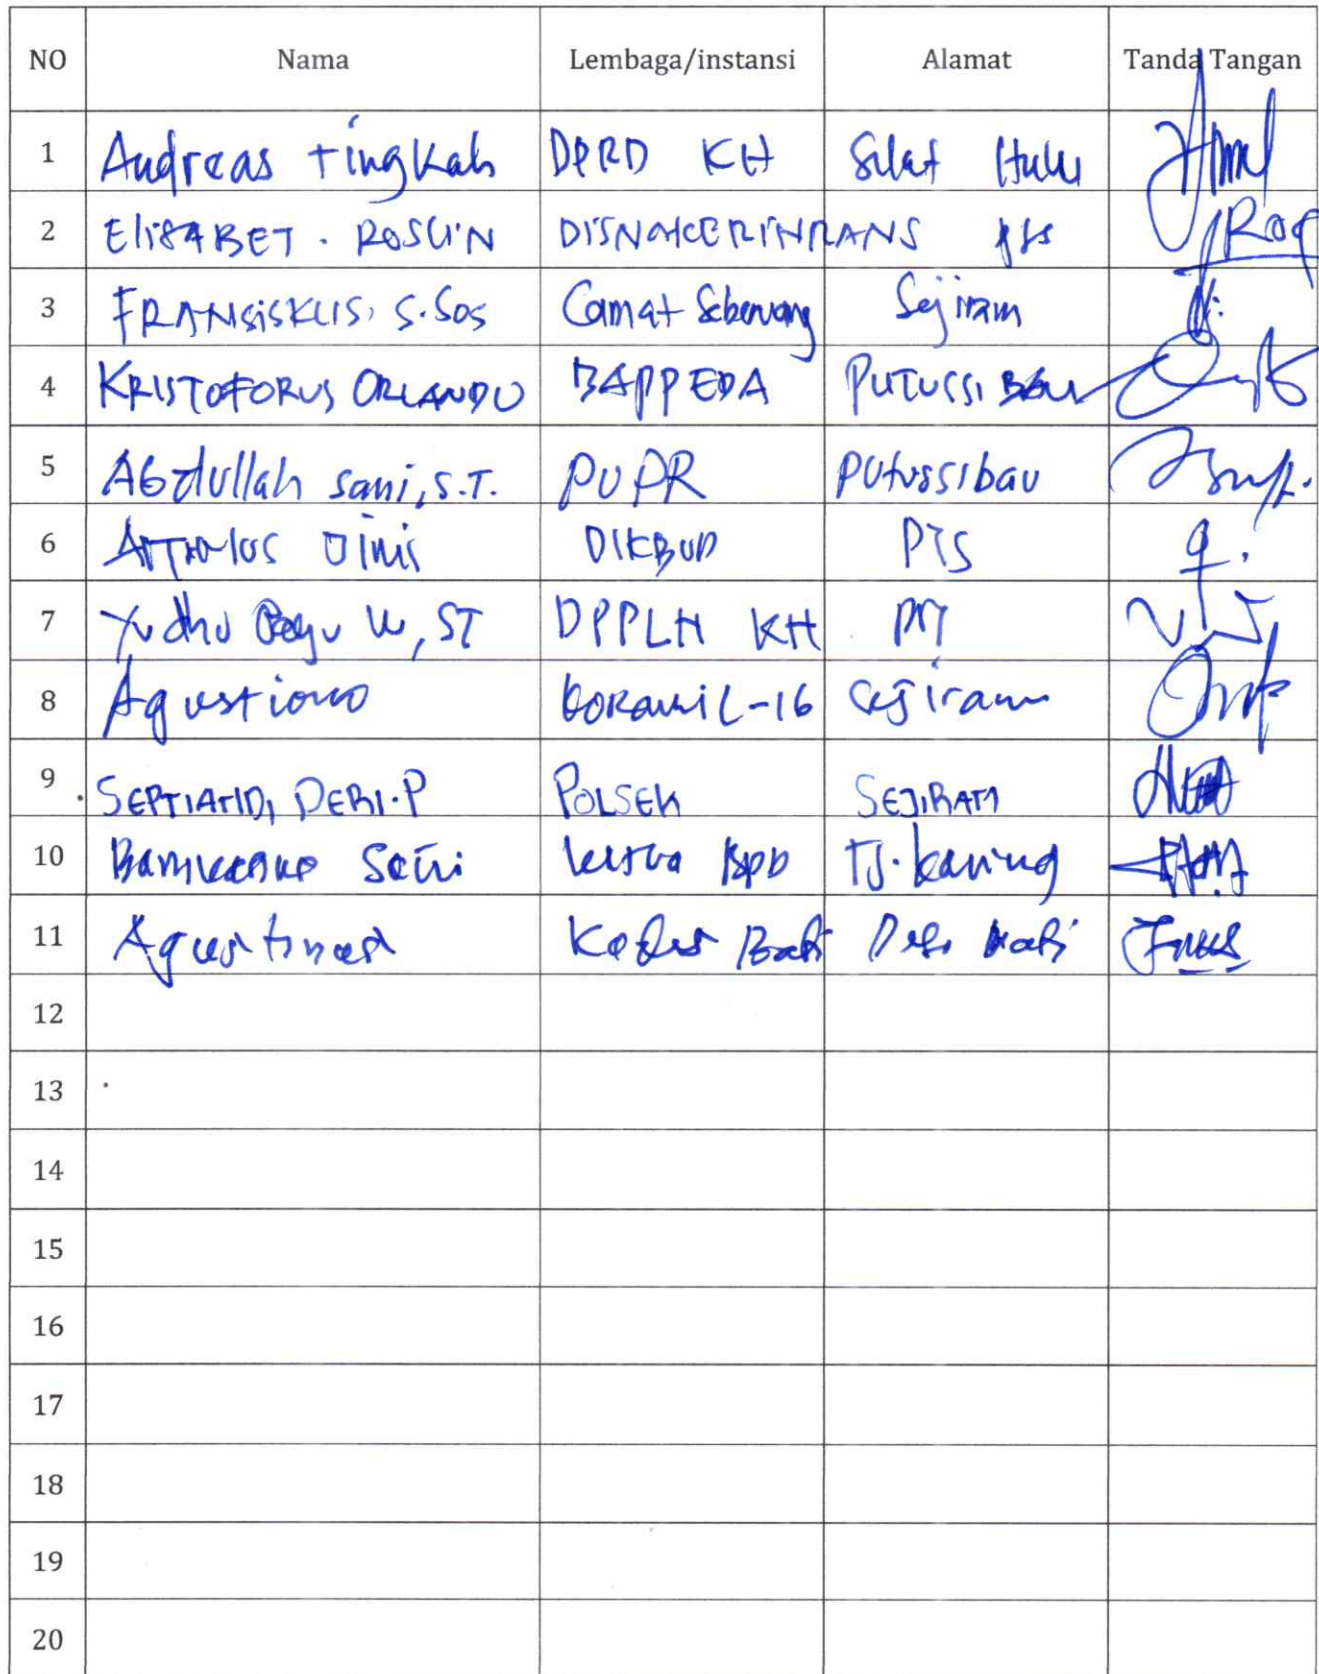 NO Nama Lembaga/instansi Alamat Tanda Tangan
1 Andreas Tingkah DPRD KH Silat Hulu
2 EliSABET. ROSLIN DISNAKERINTRANS
3 FRANSISKUS, S.Sos Camat Seberuang Sejiram
4 KRISTOFORUS ORLANDO BAPPEDA PUTUSSIBAU
5 Abdullah Sani, S.T. PUPR Putussibau
6 DIKBUD PTS
7 Yudho Bayu W, ST DPPLH KH
8 Agustiono Koramil-16 Sejiram
9 SEPTIATID, DERI.P POLSEK SEJIRAM
10 Ketua BPD TJ. Kaning
11 Agustinus Kades Bati Desa Bati
12
13
14
15
16
17
18
19
20